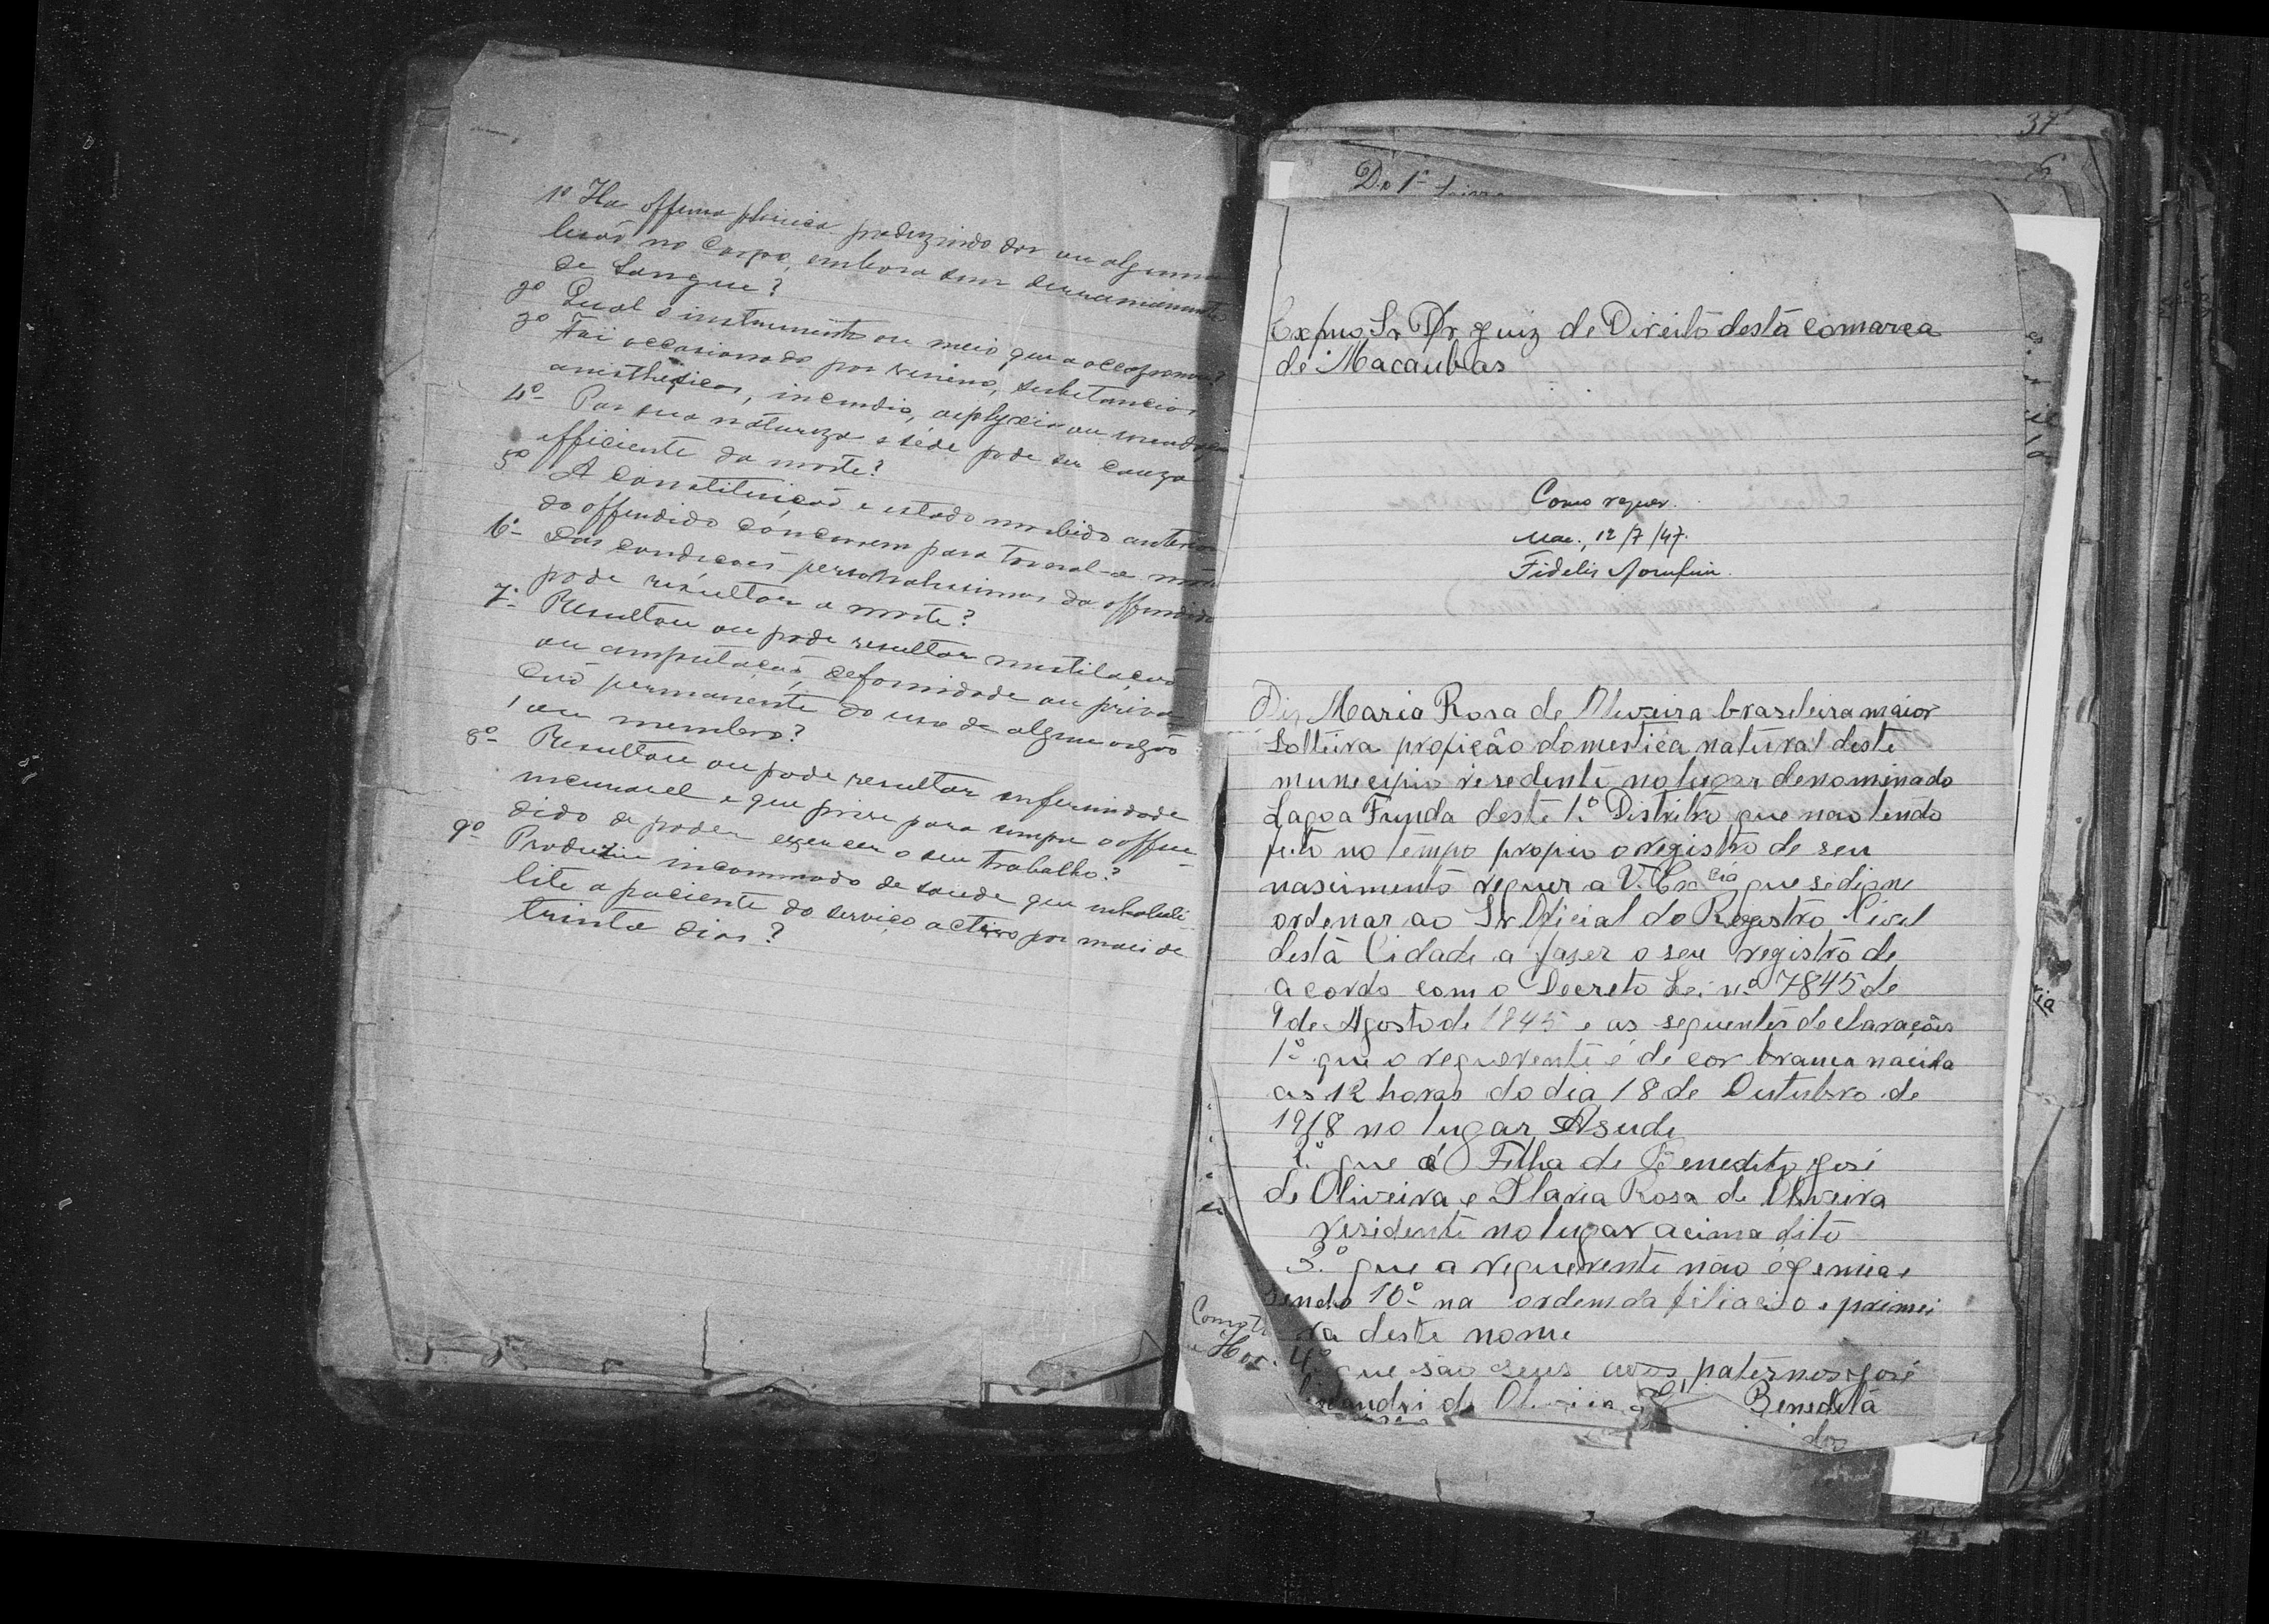 1º Ha offensa phisica produzindo dor ou alguma
lesaõ no corpo, embora sem derramamento
de sangue?
2º Qual o instrumento ou meio que a occasionou?
3º Foi occasionada por veneno, substancias
anesthesicas, incendio, asphyxia ou inundação
4º Por sua natureza e séde pode ser causa
efficiente da morte?
5º A constituiçaõ e estado morbido anterior
do offendido concorrem para tornal-a mortal
6º Das condiçaões personalissimas do offendido
pode resultar a morte?
7º Resultou ou pode resultar mutilaçaõ
ou amputaçaõ, deformidade ou priva-
çaõ permanente do uso de algum orgaõ
ou membro?
8º Resultou ou pode resultar enfermidade
incuravel e que prive para sempre o offen-
dido de poder exercer o seu trabalho?
9º Produziu incommodo de saude que inhabili-
lite o paciente do serviço activo por mais de
trinta dias?
37
6
Do 1º
Exmo Sr Dr Juiz de Direito désta comarca
de Macaubas
Como requer.
Mac., 12/7/47.
Fidelis
Diz Maria Rosa de Oliveira brasileira maior
Solteira profição domestica natural deste
municipio residente no lugar denominado
Lagoa Funda deste 1º Distrito que não tendo
feito no tempo propio o registro de seu
nascimento requer a V. Excia que se digne
ordenar ao Sr Oficial do Registro Civel
desta Cidade a faser o seu registro de
acordo com o Decreto Lei nº 7845 de
9 de Agosto de 1945 e as seguentes declarações
1º que o requerente é de cor branca nacida
as 12 horas do dia 18 de Outubro de
1918 no lugar Asude
2º que é Filha de Benedito José
de Oliveira e Maria Rosa de Oliveira
residente no lugar acima dito
3º que a requerente não é gemia e
sendo 10º na ordem da filiação e primei
ra deste nome
4º que são seus avos paternos José
de Oliveira Benedita
dos